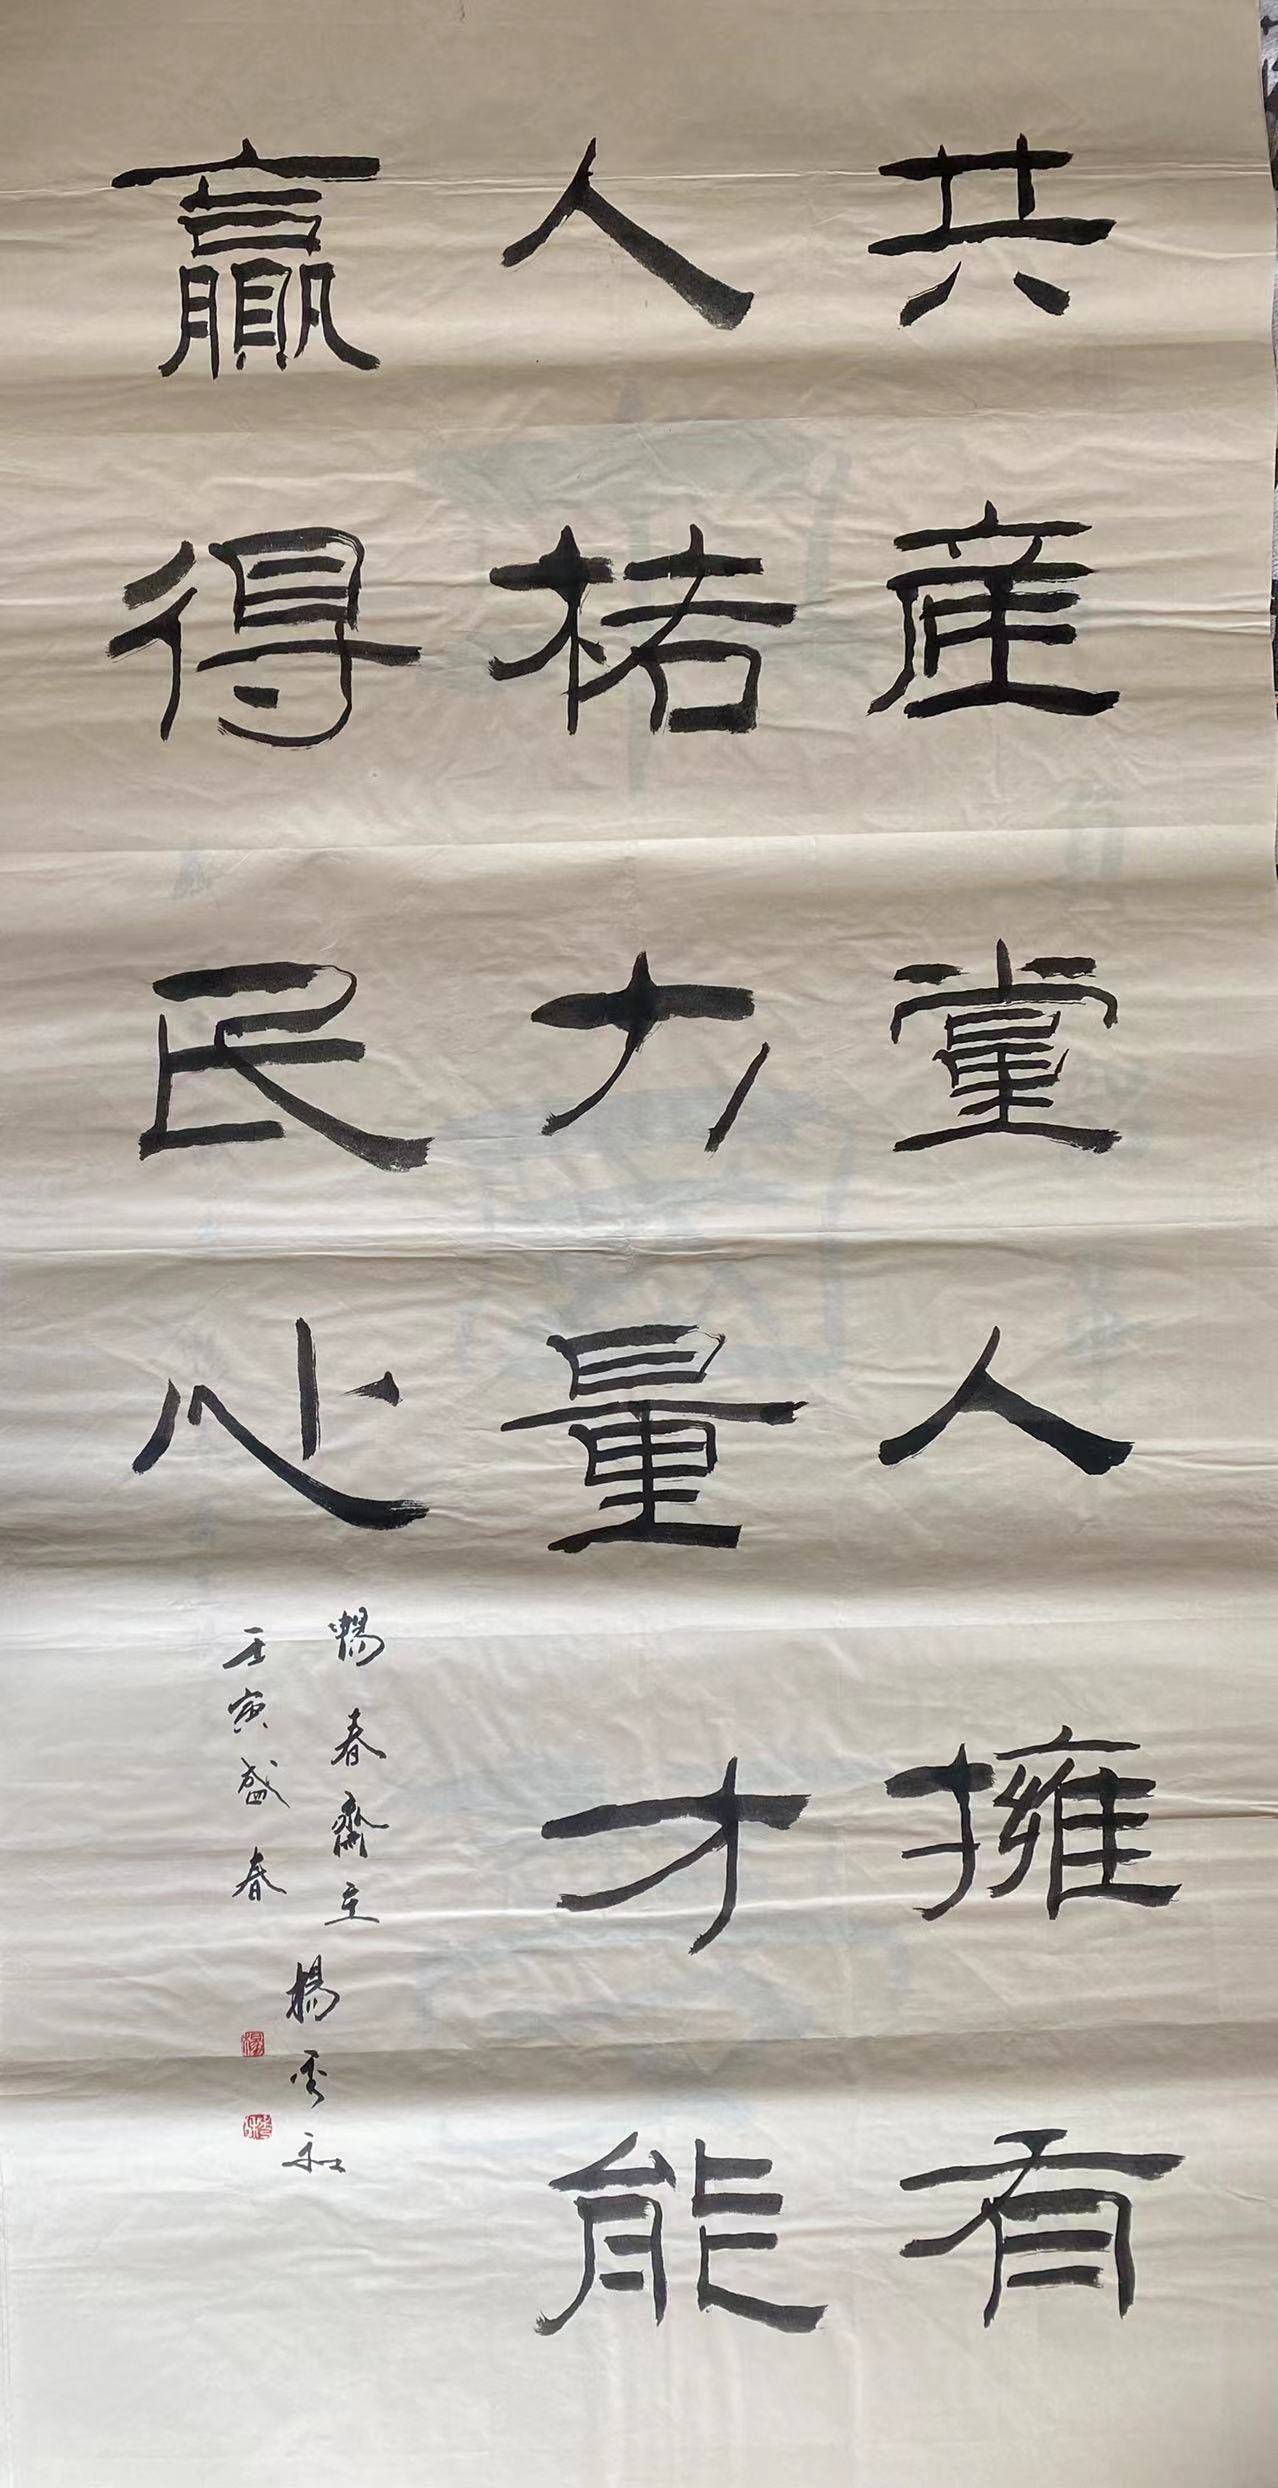 共産黨人擁有
人格力量才能
贏得民心
暢春齋主楊雲和
壬寅盛春